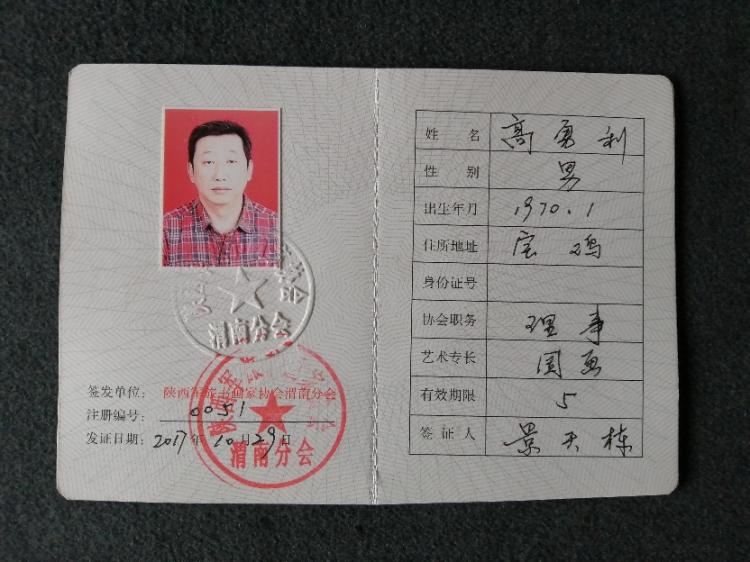 渭南分会
签发单位：陕西军旅书画家协会渭南分会
注册编号：0051
发证日期：2017年10月29日
渭南分会
姓名 高勇利
性别 男
出生年月 1970.1
住所地址 宝鸡
身份证号
协会职务 理事
艺术专长 国画
有效期限 5
签证人 景天栋